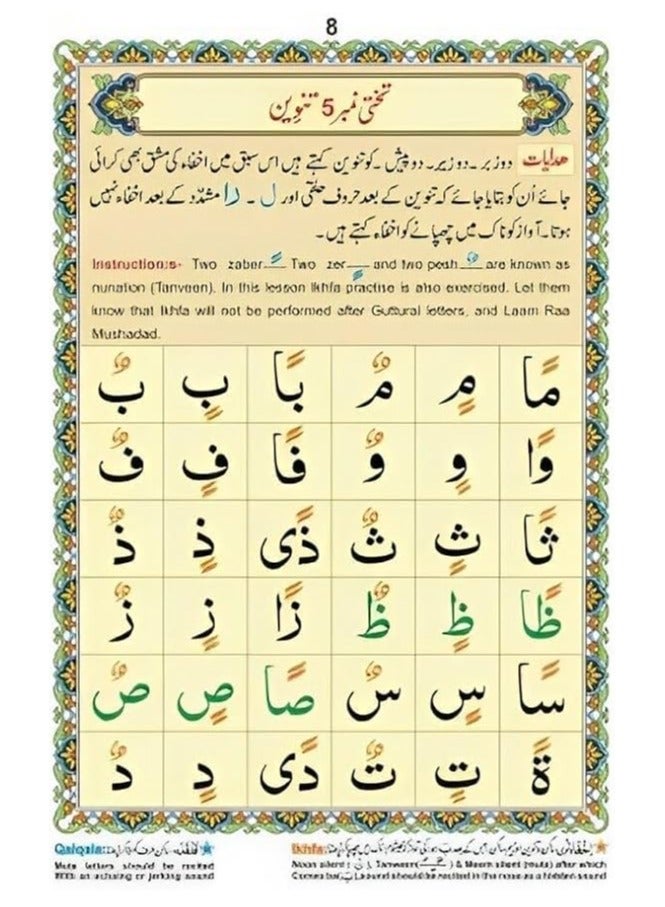 8
تختی نمبر 5 تنوین
ھدایات دو زبر۔ دو زیر۔ دو پیش۔ کو تنوین کہتے ہیں اس سبق میں اخفاء کی مشق بھی کرائی
جائے اُن کو بتایا جائے کہ تنوین کے بعد حروف حلقی اور ل۔ را مشدّد کے بعد اخفاء نہیں
ہوتا۔ آواز کو ناک میں چھپانے کو اخفاء کہتے ہیں۔
Instructions:- Two zaber ً Two zer ٍ and two pesh ٌ are known as
nunation (Tanveen). In this lesson Ikhfa practise is also exercised. Let them
know that Ikhfa will not be performed after Guttural letters, and Laam Raa
Mushadad.
مًا مٍ مٌ بًا بٍ بٌ
وًا وٍ وٌ فًا فٍ فٌ
ثًا ثٍ ثٌ ذًی ذٍ ذٌ
ظًا ظٍ ظٌ زًا زٍ زٌ
سًا سٍ سٌ صًا صٍ صٌ
ةً تٍ تٌ دًی دٍ دٌ
Ikhfa:
Noon silent (نْ), Tanween & Meem silent (mute) after which
Comes ba(ب) sound should be recited in the nose as a hidden sound
Qalqala:
Mute letters should be recited
With an echoing or jerking sound